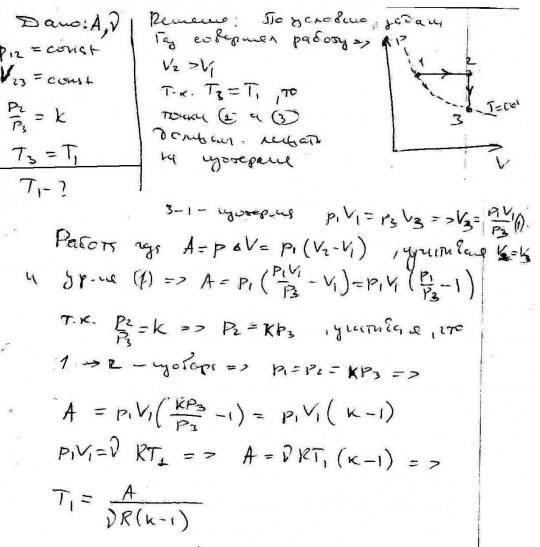 Дано: A, ν
p₁₂ = const
V₂₃ = const
p₂/p₃ = k
T₃ = T₁
T₁ - ?
Решение: По условию задачи
Газ совершал работу =>
V₂ > V₁
т.к. T₃ = T₁, то
точки ① и ③
должны лежать
на изотерме
P
1
2
3
T=const
V
3-1 - изотерма p₁V₁ = p₃V₃ => V₃ = p₁V₁/p₃ (1)
Работа газа A = pΔV = p₁(V₂-V₁), учитывая V₂=V₃
и ур-ие (1) => A = p₁(p₁V₁/p₃ - V₁) = p₁V₁(p₁/p₃ - 1)
т.к. p₂/p₃ = k => p₂ = kp₃, учитывая, что
1 → 2 - изобара => p₁ = p₂ = kp₃ =>
A = p₁V₁(kp₃/p₃ - 1) = p₁V₁(k-1)
p₁V₁ = νRT₁ => A = νRT₁(k-1) =>
T₁ = A/νR(k-1)